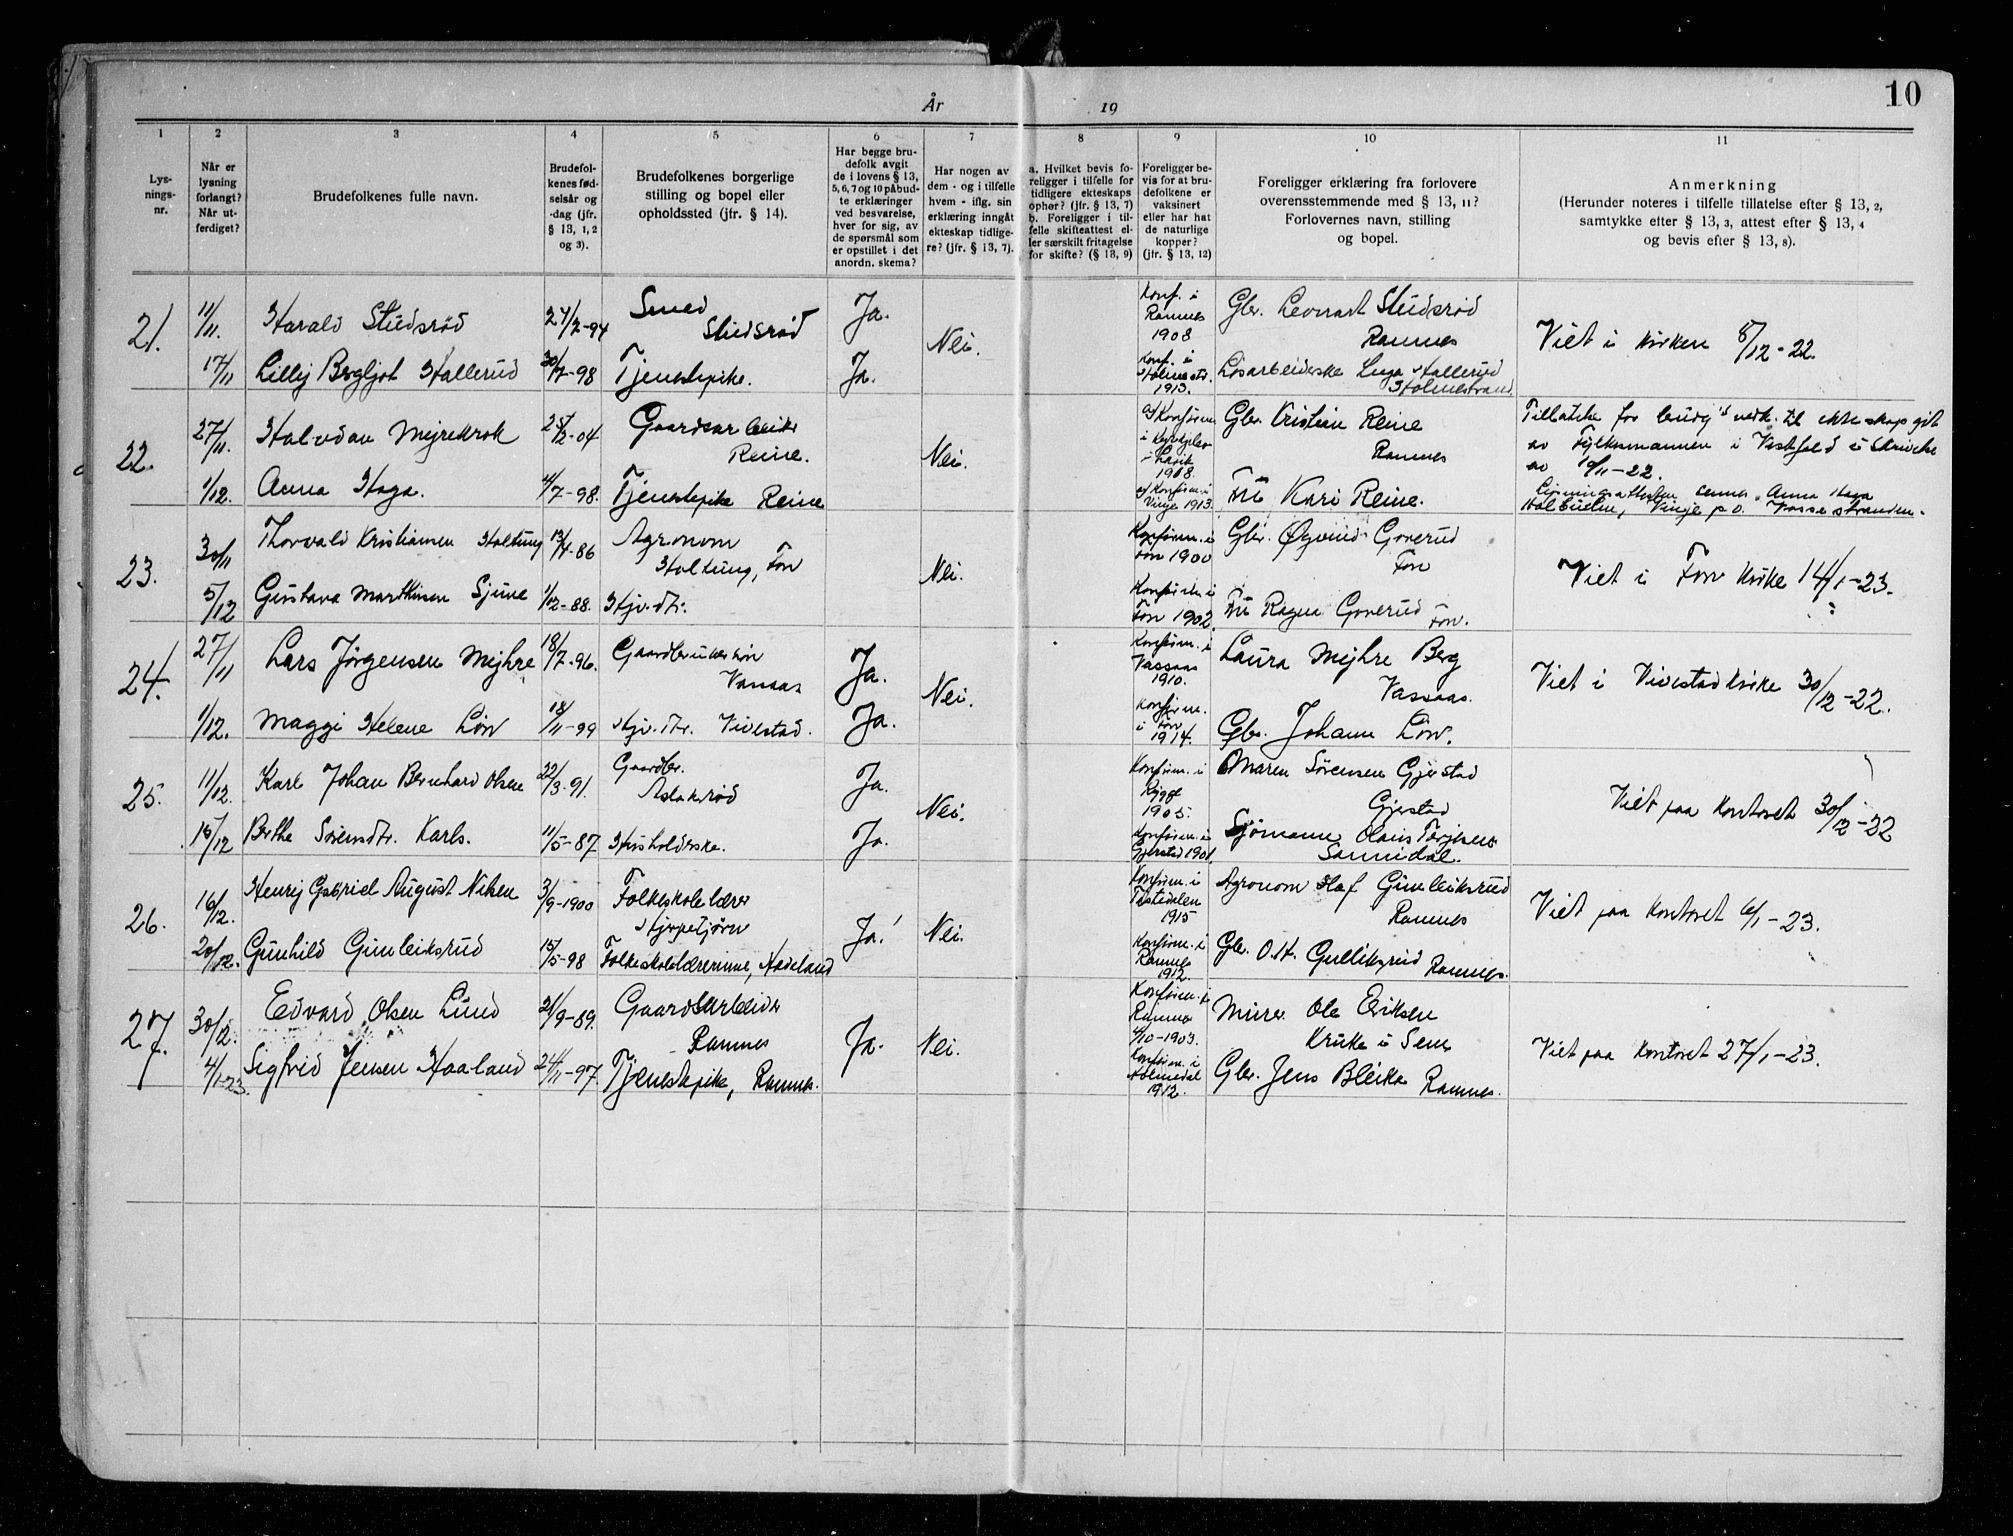 10
År 19
1 2 3 4 5 6 7 8 9 10 11
Lys-
nings-
nr.
Når er
lysning
forlangt?
Når ut-
ferdiget?
Brudefolkenes fulle navn.
Brudefol-
kenes fød-
selsår og
-dag (jfr.
§ 13, 1, 2
og 3).
Brudefolkenes borgerlige
stilling og bopel eller
opholdssted (jfr. § 14).
Har begge bru-
defolk avgit
de i lovens § 13,
5, 6, 7 og 10 påbud-
te erklæringer
ved besvarelse,
hver for sig, av
de spørsmål som
er opstillet i det
anordn. skema?
Har nogen av
dem - og i tilfelle
hvem - iflg. sin
erklæring inngåt
ekteskap tidlige-
re? (jfr. § 13, 7).
a. Hvilket bevis fo-
religger i tilfelle for
tidligere ekteskaps
ophør? (jfr. § 13, 7)
b. Foreligger i til-
felle skifteattest el-
ler særskilt fritagelse
for skifte? (§ 13, 9)
Foreligger be-
vis for at bru-
defolkene er
vaksinert
eller har hat
de naturlige
kopper?
(jfr. § 13, 12)
Foreligger erklæring fra forlovere
overensstemmende med § 13, 11?
Forlovernes navn, stilling
og bopel.
Anmerkning
(Herunder noteres i tilfelle tillatelse efter § 13, 2,
samtykke efter § 13, 3, attest efter § 13, 4
og bevis efter § 13, 8).
21.
11/11.
Harald Studsrød
24/2-94
Smed
Studsrød
Ja.
Nei.
Konf. i
Ramnes
1908
Gbr. Lennart Studsrød
Ramnes
Viet i kirken 8/12-22.
17/11
Lilly Bergljot Hallerud
30/7-98
Tjenestepike.
Ja.
Konf. i
Holmestr.
1913.
Løsarbeiderske Inga Hallerud
Holmestrand
22.
27/11.
Halvdan Mejrekrok
25/2-04
Gaardsarbeider
Reine.
Nei.
1918
Gbr. Kristian Reine
Ramnes
Tillatelse for
av Fylkesmannen i Vestfold i skrivelse
av 10/11-22.
1/12.
Anna Haga.
4/7-98.
Tjenestepike Reine
Vinje 1913.
Fru Kari Reine.
Anna Haga
Vinje p.o. Vossestranden.
23.
30/11
Thorvald Kristiansen Holtung
13/4-86
Agronom
Holtung, Fon
Nei.
Konfirm. i
Fon 1900
Gbr. Øyvind Goverud
Fon
Viet i Fon kirke 14/1-23.
5/12
Gustava Marthinsen Sjune
1/12-88.
Hjv. dtr.
Konfirm. i
Fon 1902
Fru Ragna Goverud Fon.
24.
27/11
Lars Jørgensen Mejhre
18/7-96.
Vassaas
Ja.
Nei.
Konfirm. i
Vassaas
1910.
Laura Mejhre Berg
Vassaas.
Viet i Vivestad kirke 30/12-22.
1/12.
Maggi Helene Löv
18/11-99
Hjv. dtr. Vivestad.
Ja.
Konfirm.
i Fon
1914.
Gbr. Johann Löv.
25.
11/12.
Karl Johan Bernhard Olsen
22/3-91.
Gaardbr.
Aslakrød
Ja.
Nei.
Konfirm. i
Rygge
1905.
Maren Sörensen Gjerstad
Gjerstad
Viet paa kontoret 30/12-22
15/12
Berthe Sörensdtr. Karls.
11/5-87.
Husholderske.
Ja.
Konfirm. i
Gjerstad 1901.
Sjömann Olaus Terjesen
Sannidal.
26.
16/12.
Henrij Gabriel August Nilsen
3/9-1900
Folkeskolelærer
Ja!
Nei.
Konfirm. i
Tistedalen
1915
Agronom Olaf Gunleiksrud
Ramnes
Viet paa kontoret 6/1-23.
20/12.
Gunhild Gunleiksrud
15/5-98
Folkeskolelærerinne, Hadeland
Konfirm. i
Ramnes
1912.
Gbr. O. H. Gulliksrud Ramnes.
27.
30/12.
Edvard Olsen Lund
21/9-89.
Gaardsarbeider
Ramnes
Ja.
Nei.
Konfirm. i
Ramnes
4/10-1903.
Murer Ole Eriksen
Kruke i Sem
Viet paa kontoret 27/1-23.
4/1-23.
Sigfrid Jensen Haaland
24/11-97.
Tjenestepike, Ramnes.
Konfirm. i
Holmedal
1912.
Gbr. Jens Bleika Ramnes.